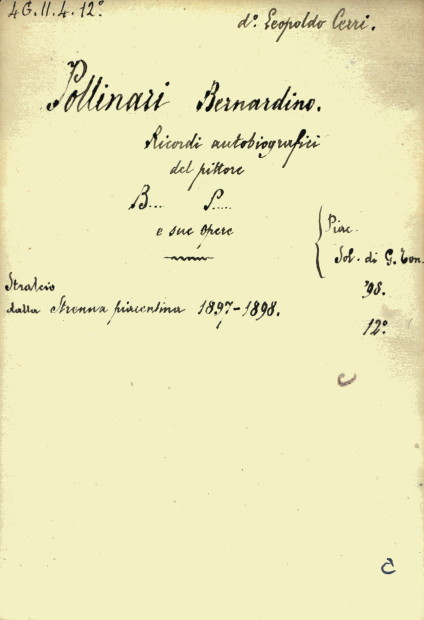 4G.II.4.12°
d°. Leopoldo Cerri.
Pollinari Bernardino.
Ricordi autobiografici
del pittore
B.... P.....
e sue opere
Piac.
Sol. di G. Ton.
'98.
12°
Stralcio
dalla Strenna piacentina 1897-1898.
C